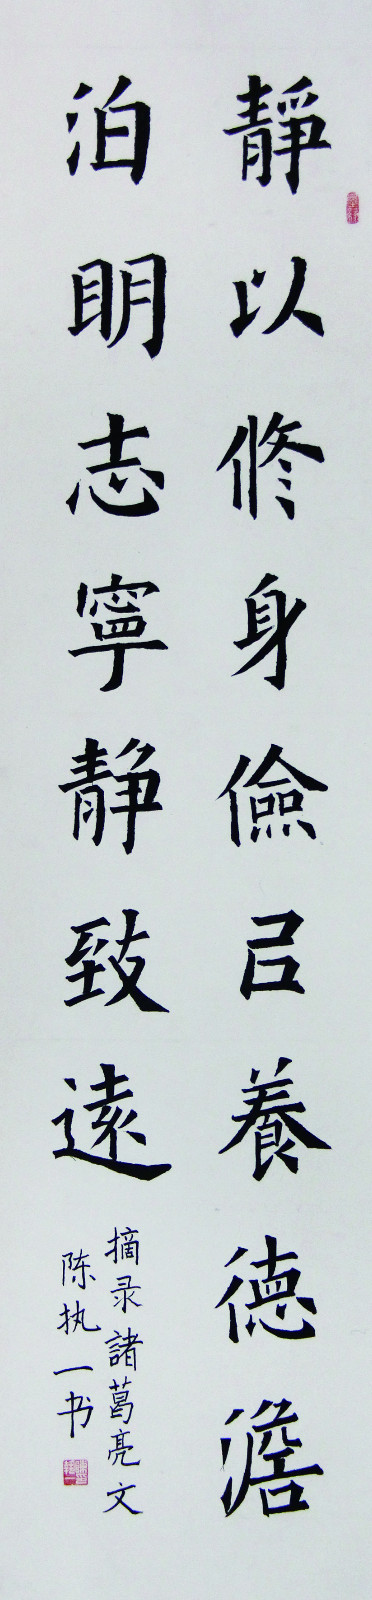 靜以修身儉㠯養德澹
泊明志寧静致遠
摘录諸葛亮文
陈执一书